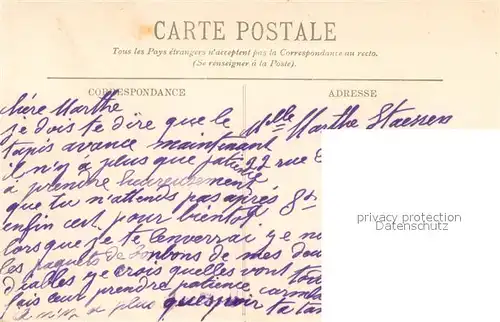 CARTE POSTALE
Tous les Pays étrangers n'acceptent pas la Correspondance au recto.
(Se renseigner à la Poste).
CORRESPONDANCE
ADRESSE
chère Marthe
je dois te dire que le
tapis avance maintenant
il n'y a plus que patience
à prendre heureusement
que tu n'attends pas après
enfin cest pour bientot
lorsque je te lenverrai je
les paquets de bonbons de mes
diables je crois quelles vont
fais leur prendre patience
a plus quespoir ta
Melle Marthe Staessen
22 rue
privacy protection
my-lual.com